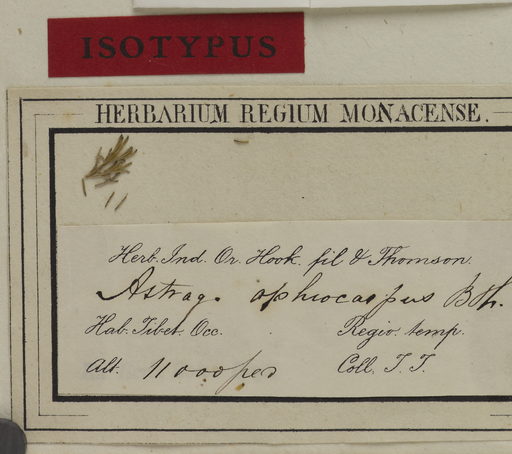 ISOTYPUS
HERBARIUM REGIUM MONACENSE.
Herb. Ind. Or. Hook. fil & Thomson.
Astrag. ophiocarpus Bth.
Hab. Tibet. Occ. Regio. temp.
Alt. 11000 ped Coll. T. T.